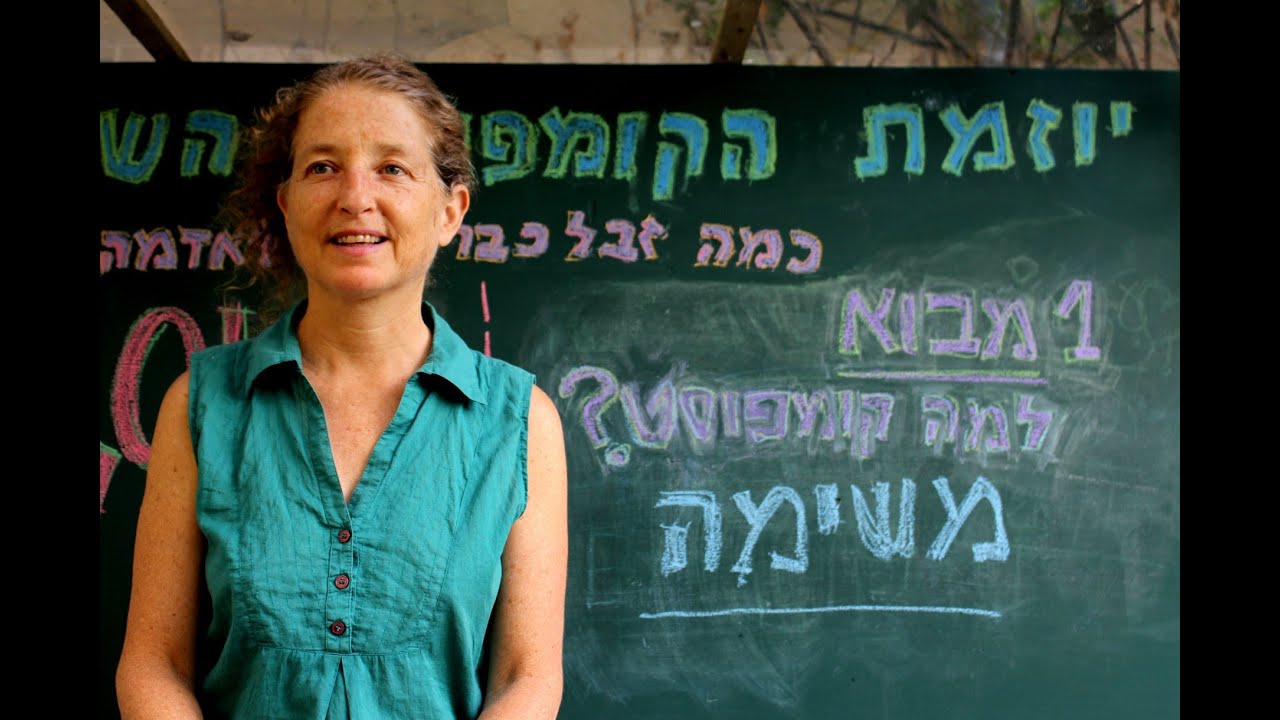 יוזמת הקומפ הש
כמה זבל כבר אדמה
1 מבוא
למה קומפוסט?
משימה